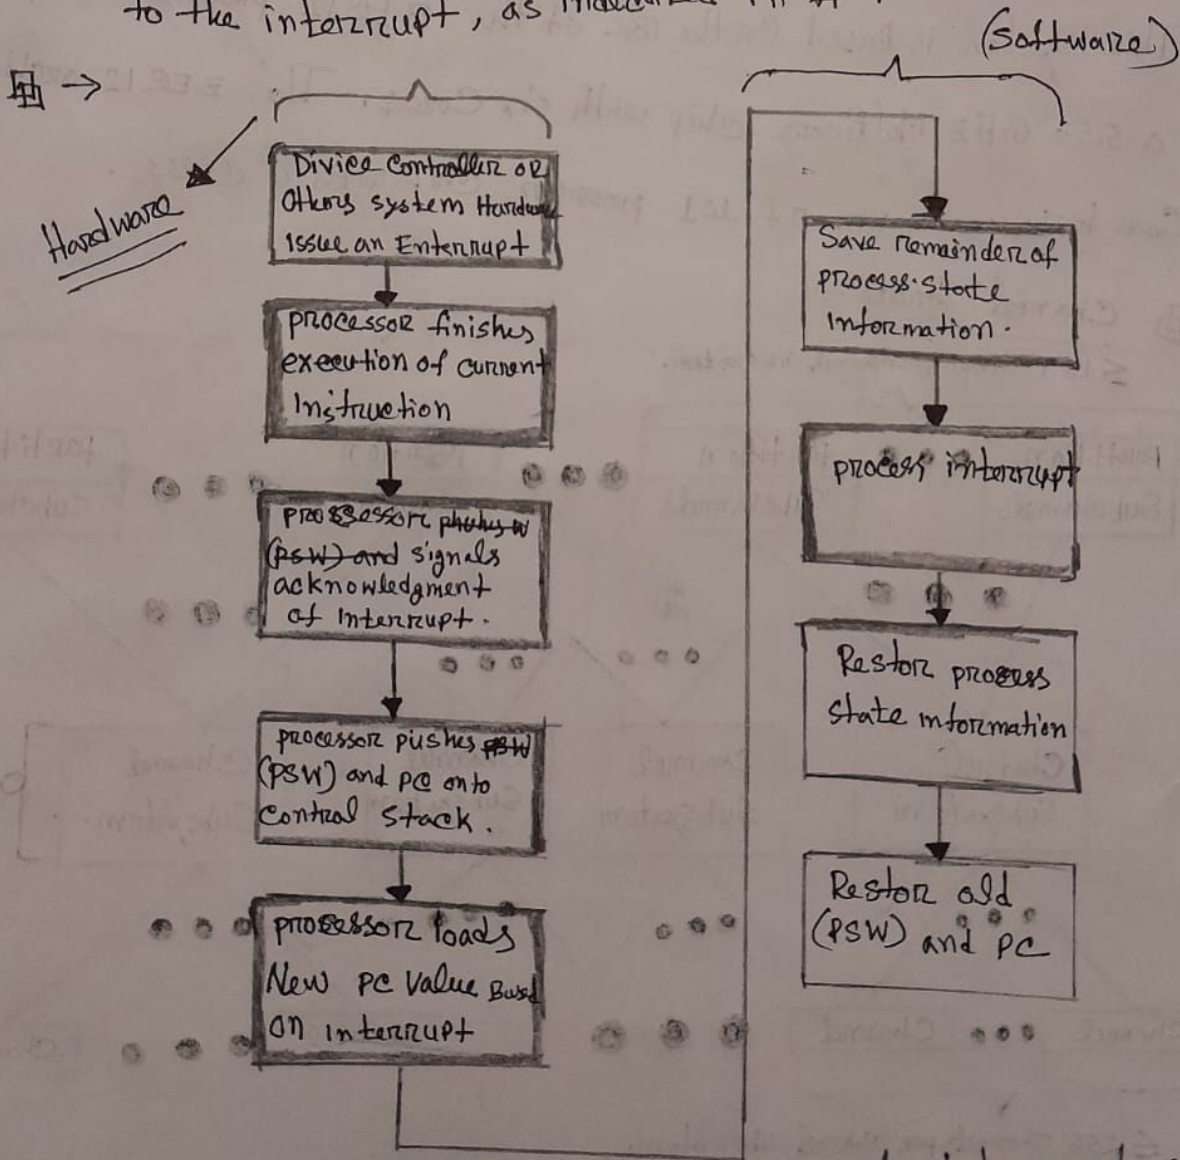 to the interrupt, as
(Software)
Hardware
Divice Controller OR
Others system Hardware
Issue an Enterrupt
processor finishes
execution of current
Instruction
prossessor
(PSW) and signals
acknowledgment
of Interrupt.
processor pushes
(PSW) and PC onto
Control Stack.
processor loads
New PC Value Based
on interrupt
Save remainder of
process state
Information.
process interrupt
Restor process
state information
Restor old
(PSW) and PC